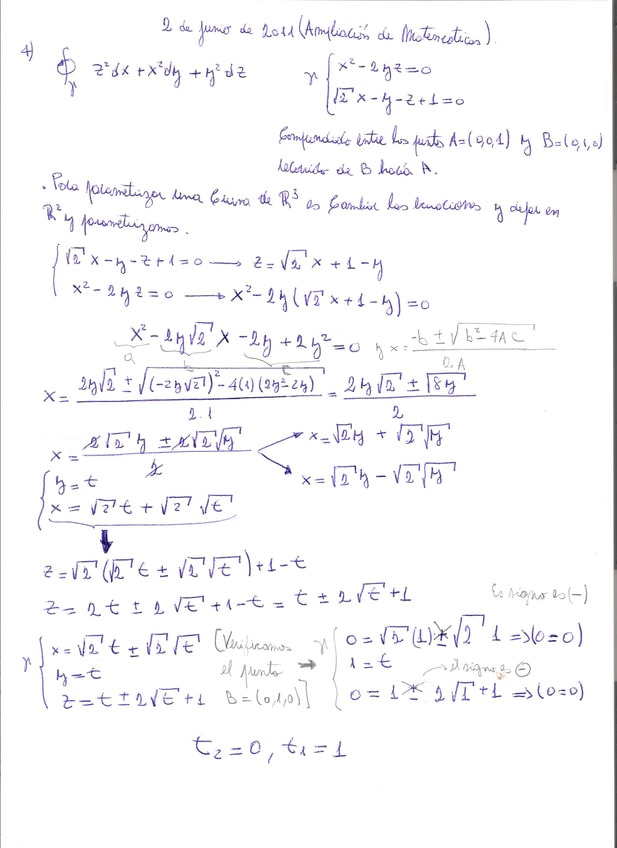 2 de Junio de 2011 (Ampliación de Matemáticas).
4) ∮γ z²dx + x²dy + y²dz γ { x² - 2yz = 0
√2 x - y - z + 1 = 0
Comprendido entre los puntos A = (0,0,1) y B = (0,1,0)
recorrido de B hacia A.
. Para parametrizar una Curva de ℝ³ es Cambiar las ecuaciones y dejar en
ℝ² y parametrizamos.
{ √2 x - y - z + 1 = 0 → z = √2 x + 1 - y
x² - 2yz = 0 → x² - 2y(√2 x + 1 - y) = 0
x² - 2y√2 x - 2y + 2y² = 0 y x = (-b ± √(b² - 4AC)) / 2.A
a b c
x = (2y√2 ± √((-2y√2)² - 4(1)(2y² - 2y))) / 2.1 = (2y√2 ± √(8y)) / 2
x = (2√2 y ± 2√2 √y) / 2 → x = √2 y + √2 √y
→ x = √2 y - √2 √y
{ y = t
x = √2 t + √2 √t
z = √2 (√2 t ± √2 √t) + 1 - t
z = 2t ± 2√t + 1 - t = t ± 2√t + 1
El signo es (-)
γ { x = √2 t ± √2 √t [Verificamos → γ { 0 = √2 (1) ± √2 1 ⇒ (0=0)
y = t el punto 1 = t → el signo es ⊖
z = t ± 2√t + 1 B = (0,1,0)] 0 = 1 ± 2√1 + 1 ⇒ (0=0)
t₂ = 0, t₁ = 1